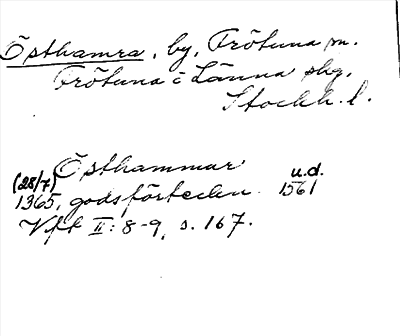 Östhamra, by, Frötuna sn.
Frötuna o Länna skg,
Stockh. l.
Östhammar
(28/7) 1365, godsförtecken. u.d. 1561
Vfk II: 8-9, s. 167.